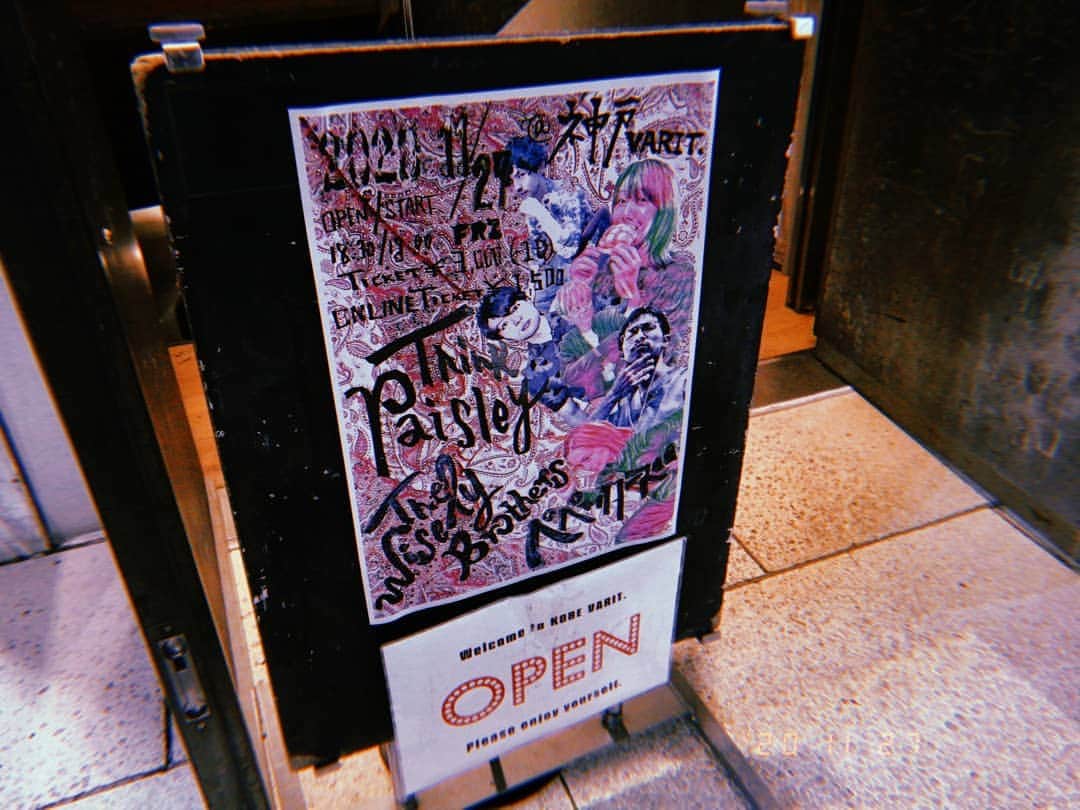 2020. 11/27 @ 神戸 VARIT.
FRI
OPEN/START
18:30/19:00
TICKET ¥3,000 (+1D)
ONLINE TICKET ¥1,500
Think
Paisley
The
Sexy
Brothers
Welcome to KOBE VARIT.
OPEN
Please enjoy yourself.
'20 11 27